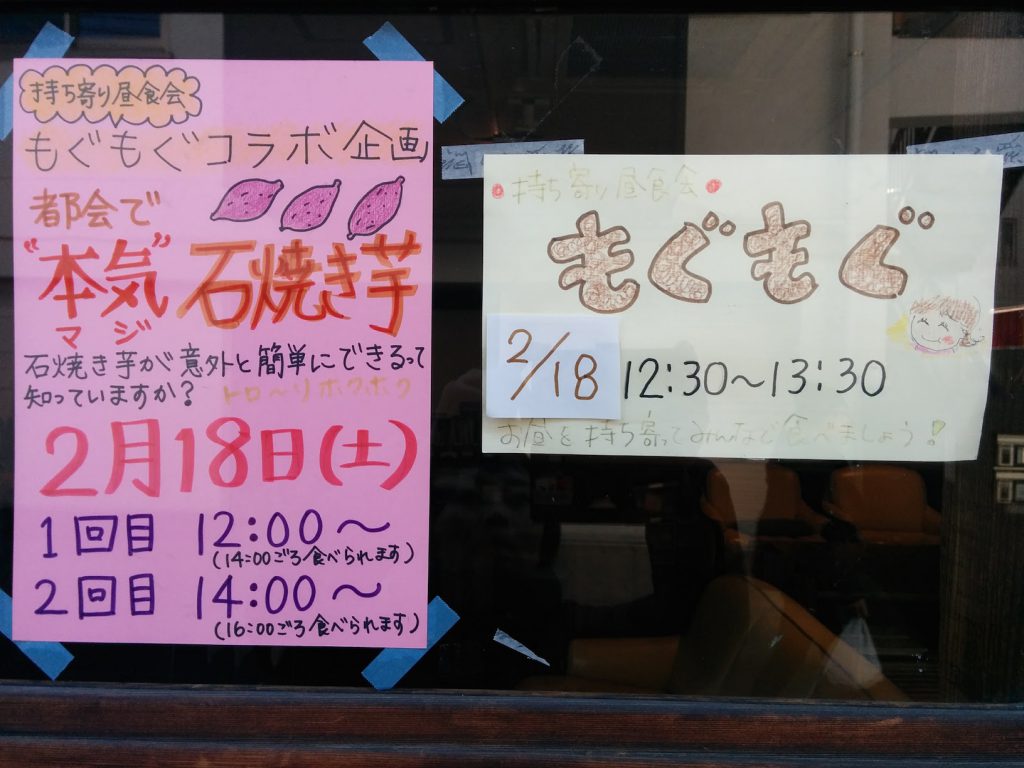 持ち寄り昼食会
もぐもぐコラボ企画
都会で
"本気"石焼き芋
マジ
石焼き芋が意外と簡単にできるって
知っていますか? トロ〜リホクホク
2月18日(土)
1回目 12:00〜
(14:00ごろ食べられます)
2回目 14:00〜
(16:00ごろ食べられます)
持ち寄り昼食会
もぐもぐ
2/18 12:30〜13:30
お昼を持ち寄ってみんなで食べましょう!